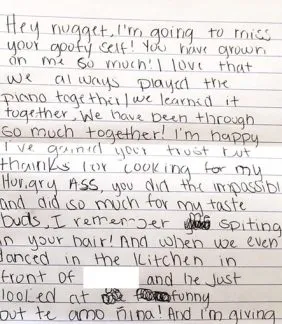 Hey nugget, I'm going to miss
your goofy self! You have grown
on me so much! I love that
we always played the
piano together, we learned it
together, We have been through
so much together! I'm happy
I've gained your trust but
thainks for cooking for my
Hungry Ass, you did the impossibl
and did so much for my taste
buds, I remember spiting
in your hair! And when we even
danced in the kitchen in
front of and he just
looked at funny
but te amo niña! And I'm giving